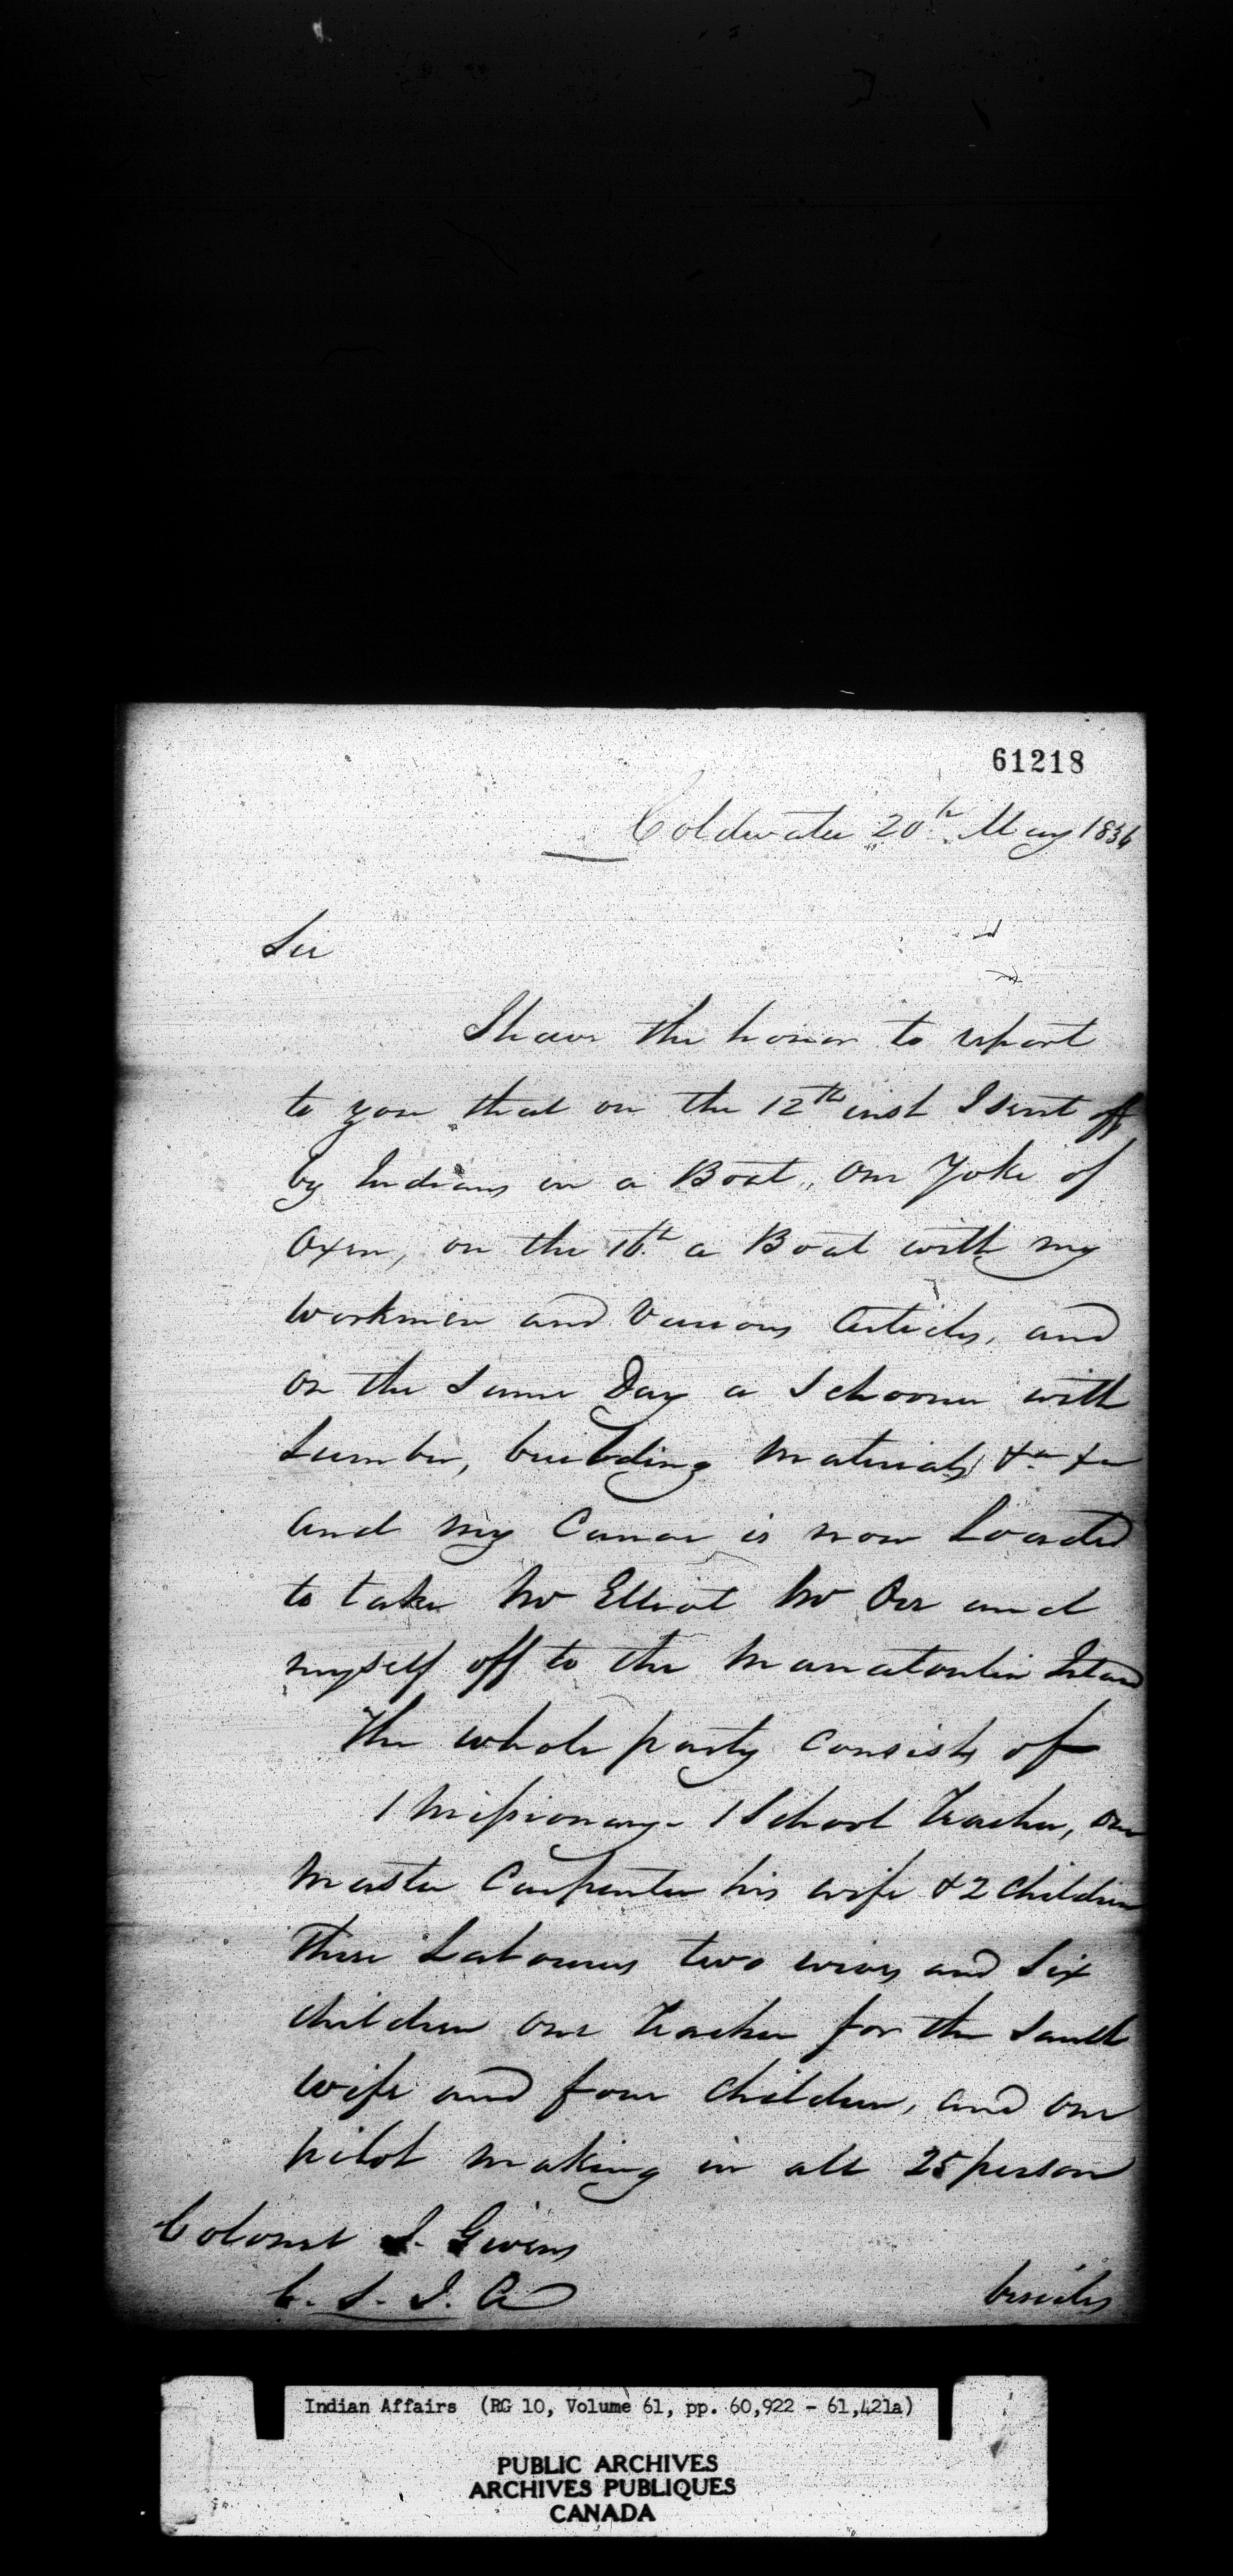 61218
Coldwater 20th May 1836
Sir
I have the honor to report
to you that on the 12th inst I sent off
by Indians in a Boat, one Yoke of
Oxen, on the 16th a Boat with my
workmen and Various Articles, and
on the same Day a Schooner with
Lumber, building Materials &a &a
and my Canoe is now Loaded
to take Mr Elliot Mr Orr and
myself off to the Manatoulin Island
The whole party consists of
1 Missionary - 1 School Teacher, one
Master Carpenter his wife & 2 Children
Three Labourers two wives and Six
children one Teacher for the Sault
wife and four children, and one
pilot making in all 25 person
Colonel J. Givens
C. S. I. A
besides
Indian Affairs (RG 10, Volume 61, pp. 60,922 - 61,421a)
PUBLIC ARCHIVES
ARCHIVES PUBLIQUES
CANADA